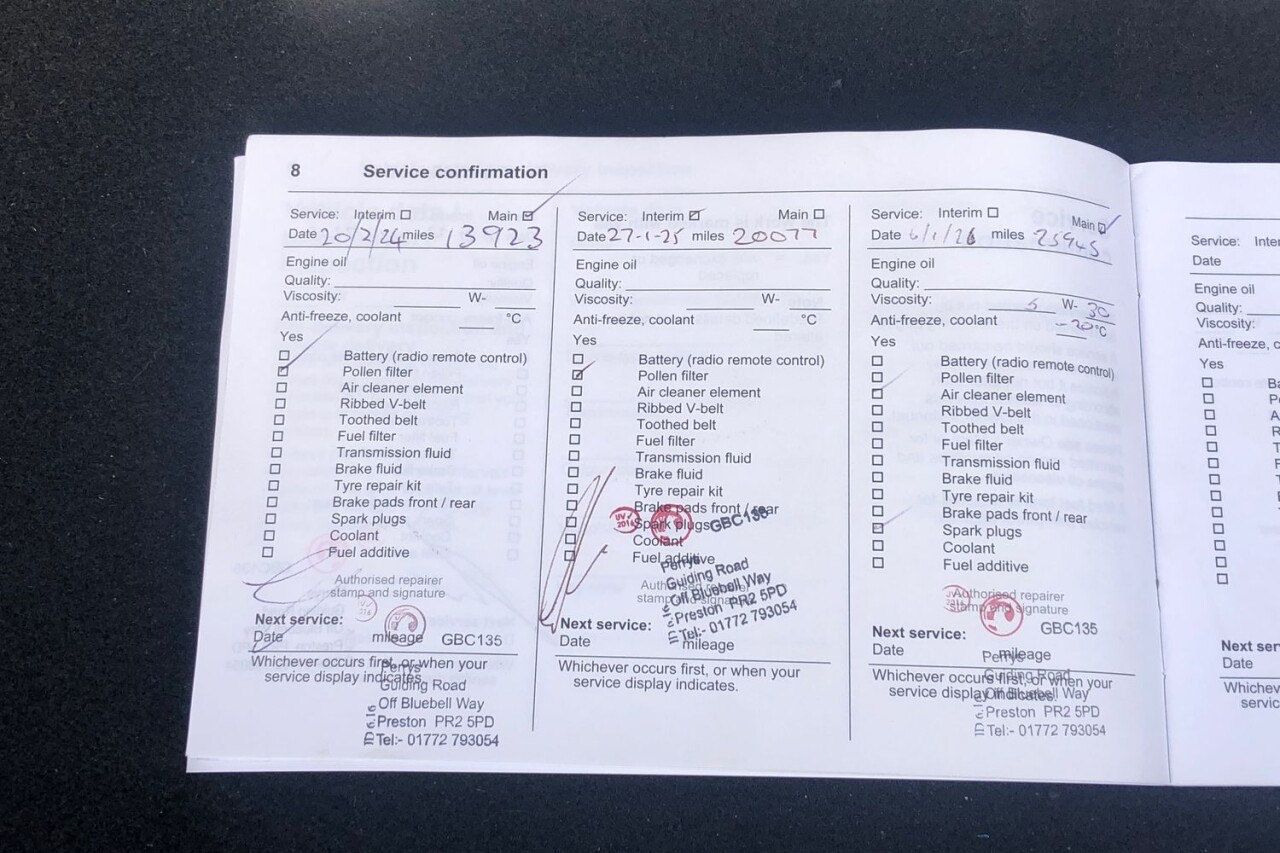 8 Service confirmation
Service: Interim Main
Date 20/2/24 miles 13923
Engine oil
Quality:
Viscosity: W-
Anti-freeze, coolant °C
Yes
Battery (radio remote control)
Pollen filter
Air cleaner element
Ribbed V-belt
Toothed belt
Fuel filter
Transmission fluid
Brake fluid
Tyre repair kit
Brake pads front / rear
Spark plugs
Coolant
Fuel additive
Authorised repairer
stamp and signature
Next service:
Date mileage GBC135
Whichever occurs first, or when your
service display indicates.
Perrys
Guiding Road
Off Bluebell Way
Preston PR2 5PD
Tel:- 01772 793054
Service: Interim Main
Date 27-1-25 miles 20077
Engine oil
Quality:
Viscosity: W-
Anti-freeze, coolant °C
Yes
Battery (radio remote control)
Pollen filter
Air cleaner element
Ribbed V-belt
Toothed belt
Fuel filter
Transmission fluid
Brake fluid
Tyre repair kit
Brake pads front / rear
Spark plugs GBC135
Coolant
Fuel additive
Perrys
Guiding Road
Off Bluebell Way
Preston PR2 5PD
Tel:- 01772 793054
Authorised repairer
stamp and signature
Next service:
Date mileage
Whichever occurs first, or when your
service display indicates.
Service: Interim Main
Date 6/1/26 miles 25945
Engine oil
Quality:
Viscosity: 5 W- 30
Anti-freeze, coolant -20°C
Yes
Battery (radio remote control)
Pollen filter
Air cleaner element
Ribbed V-belt
Toothed belt
Fuel filter
Transmission fluid
Brake fluid
Tyre repair kit
Brake pads front / rear
Spark plugs
Coolant
Fuel additive
Authorised repairer
stamp and signature
GBC135
Next service:
Date mileage
Whichever occurs first, or when your
service display indicates.
Perrys
Guiding Road
Off Bluebell Way
Preston PR2 5PD
Tel:- 01772 793054
Service:
Date
Engine oil
Quality:
Viscosity:
Yes
Date